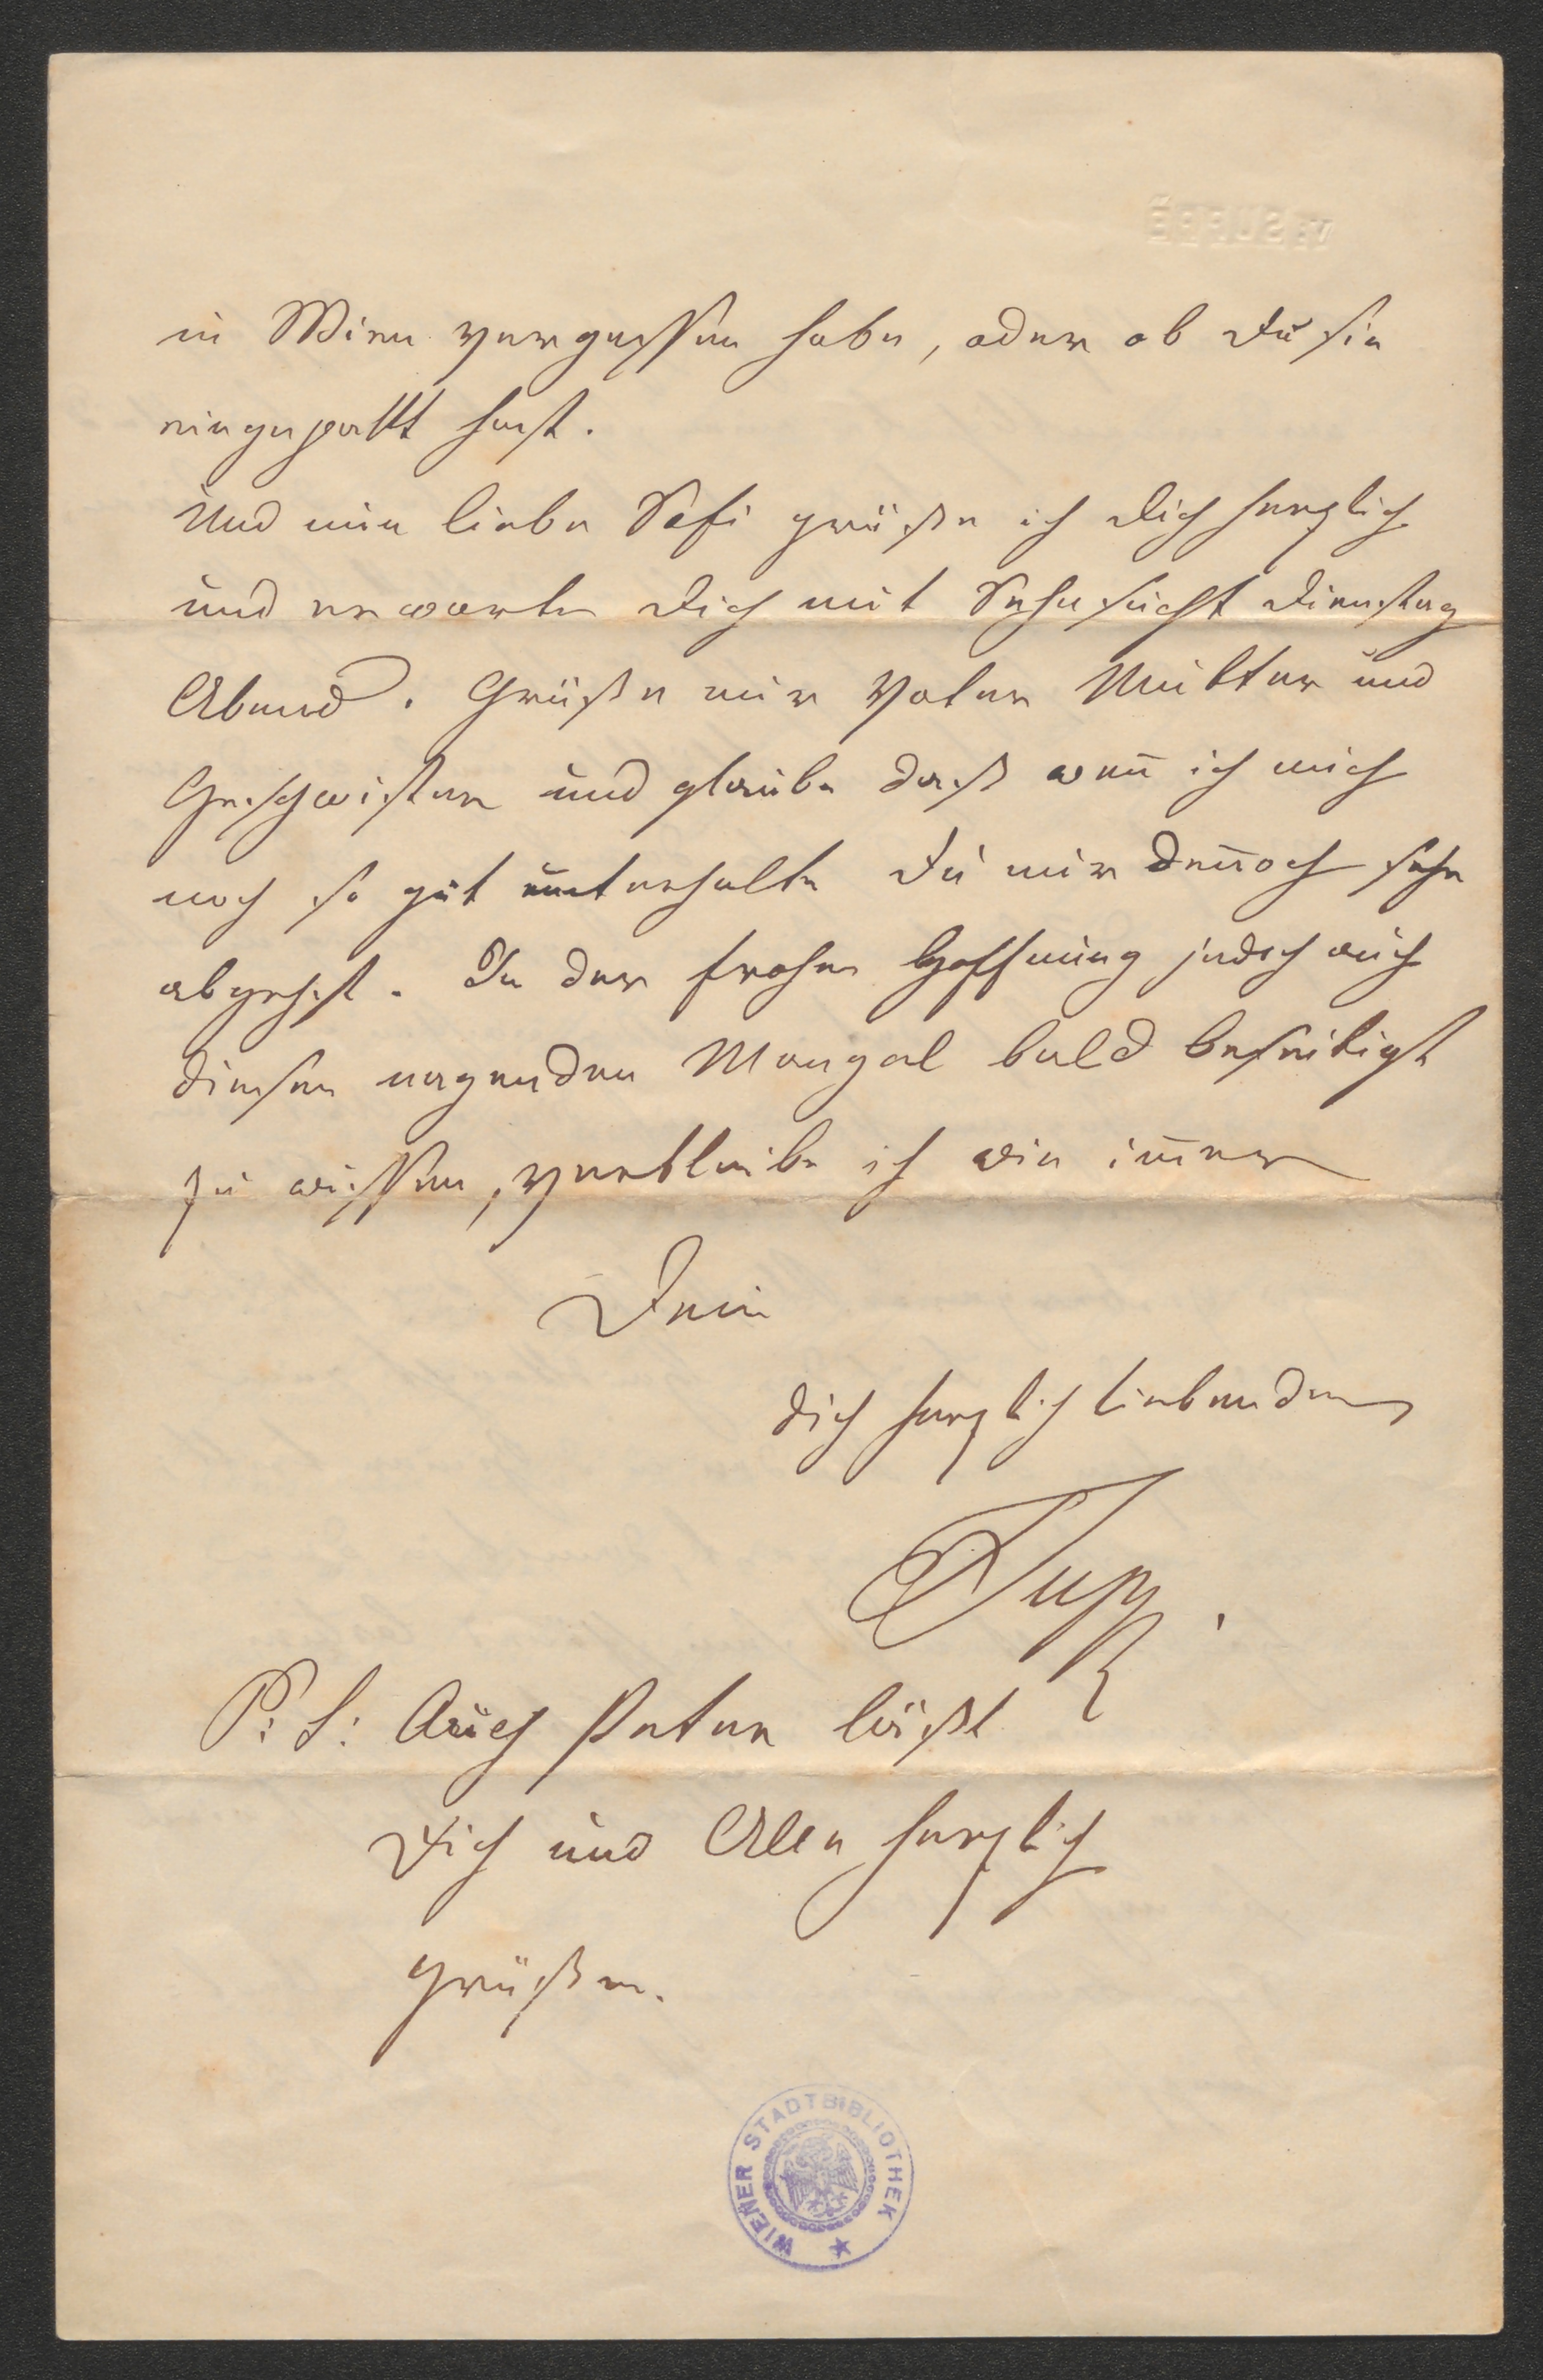 v: SUPPÉ
in Wien vergessen habe, oder ob Du sie
eingepakt hast.
Und nun liebe Sofi grüße ich Dich herzlich
und erwarte Dich mit Sehnsucht Dienstag
Abend. Grüße mir Vater Mutter und
Geschwister und glaube daß wen̄ ich mich
noch so gut unterhalte Du mir den̄och sehr
abgehst. In der frohen Hoffnung jedoch auch
diesen nagenden Mangel bald beseitigt
zu wissen, verbleibe ich wie im̄er
Dein
Dich herzlich liebender
Suppé.
P: S: Auch Peter läßt
Dich und Alle herzlich
grüßen.
WIENER STADTBIBLIOTHEK